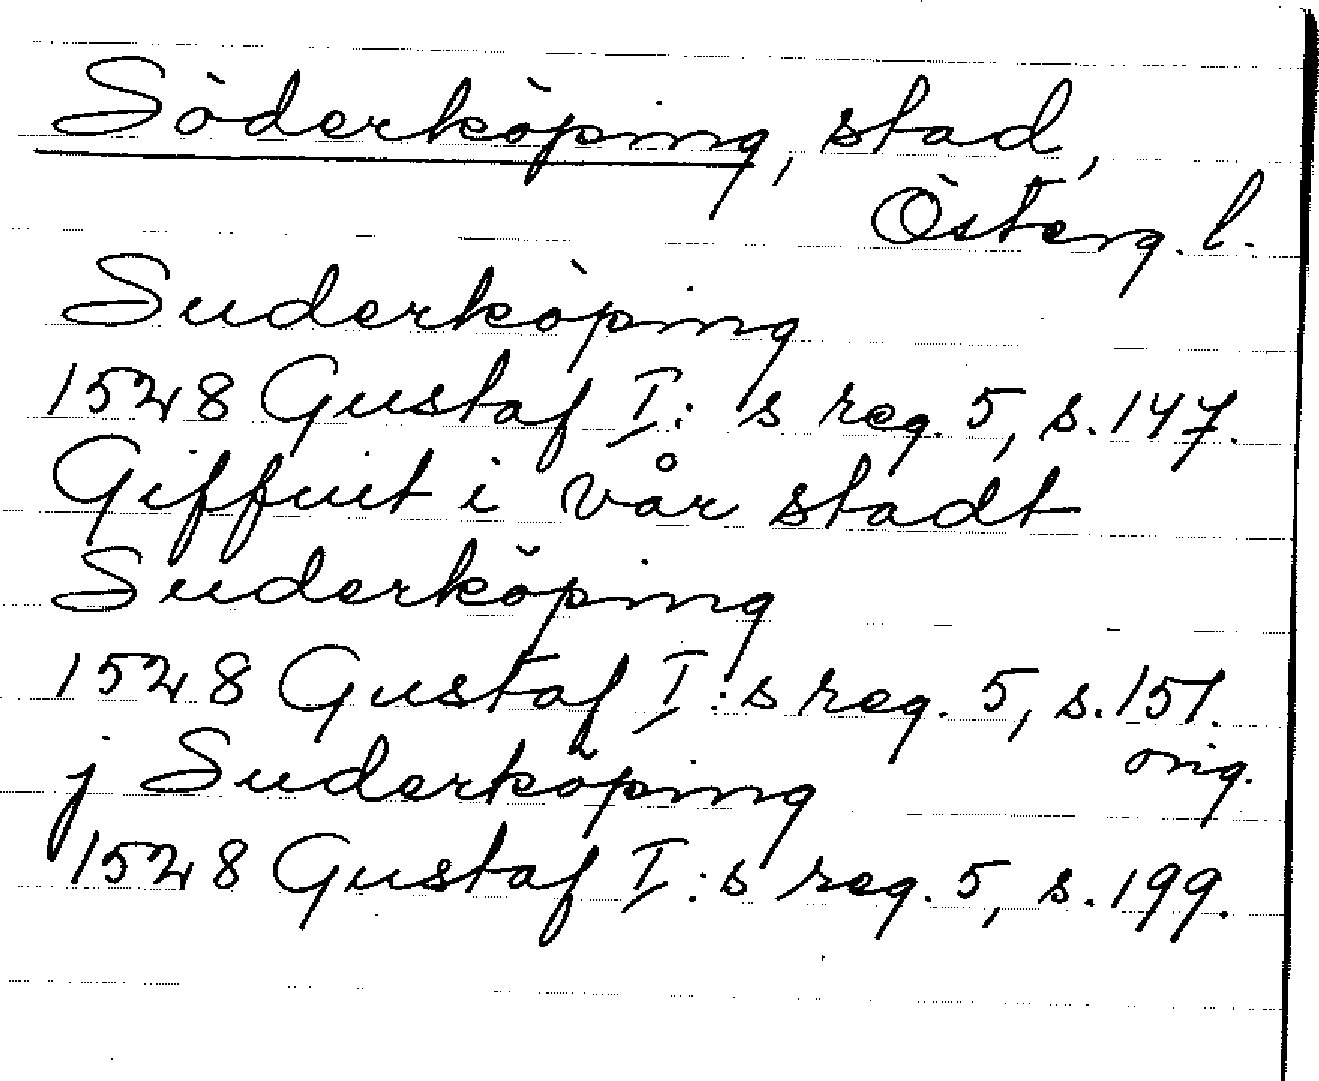 Söderköping, stad,
Österg. l.
Suderköping
1528 Gustaf I: s reg. 5, s. 147.
Giffuit i vår stadt
Suderköping
1528 Gustaf I:s reg. 5, s. 151.
orig.
j Suderköping
1528 Gustaf I:s reg. 5, s. 199.